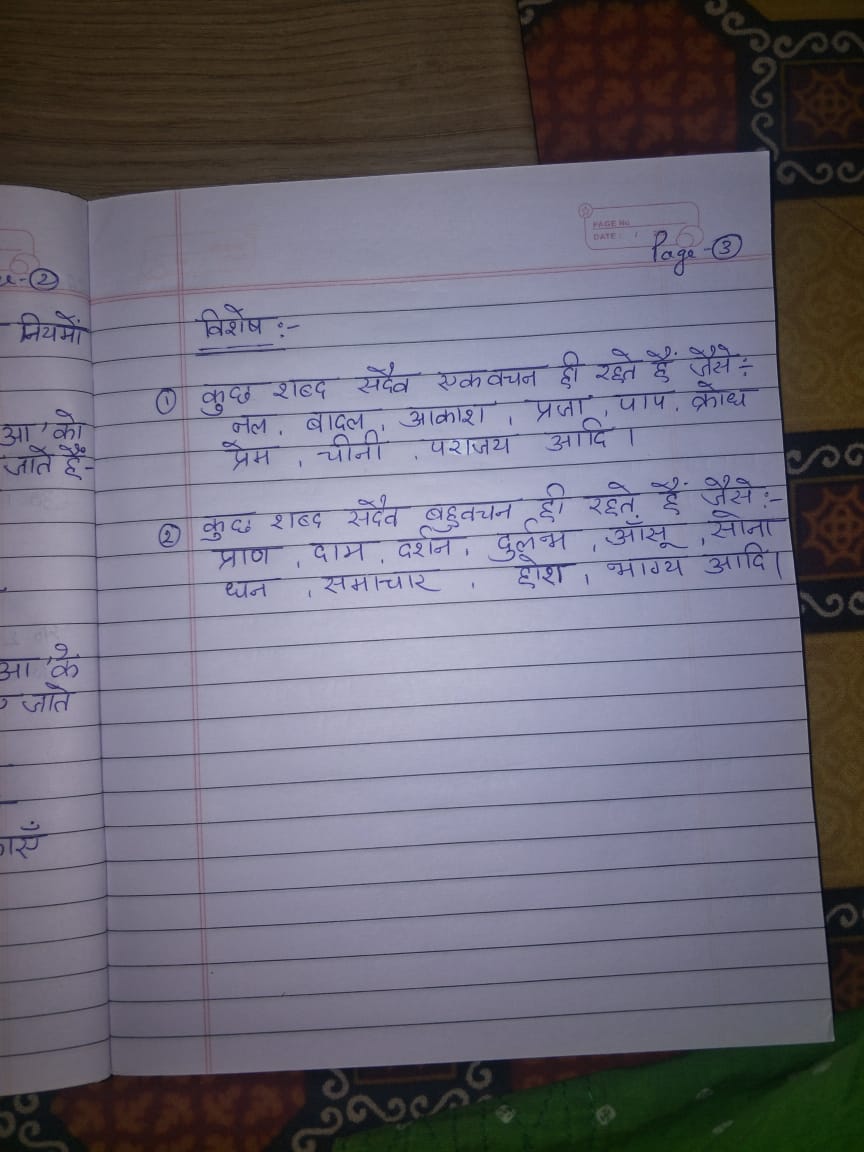 PAGE No.
DATE : / /
Page - ③
विशेष :-
① कुछ शब्द सदैव एकवचन ही रहते हैं जैसे :-
जल , बादल , आकाश , प्रजा , पाप , क्रोध
प्रेम , चीनी , पराजय आदि ।
② कुछ शब्द सदैव बहुवचन ही रहते हैं जैसे :-
प्राण , दाम , दर्शन , आँसू , सोना
धन , समाचार , होश , भाग्य आदि ।
- ②
नियमों
आ' को
जाते हैं-
आ' के
जाते